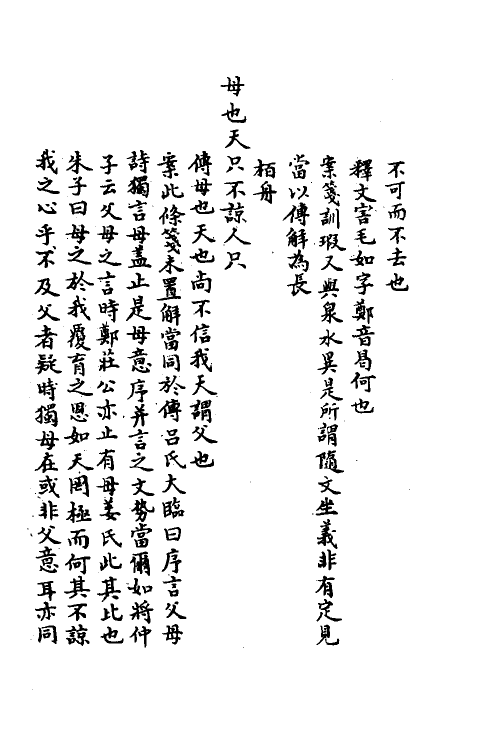 不可而不去也
釋文害毛如字鄭音曷何也
案箋訓瑕又與泉水異是所謂隨文坐義非有定見
當以傳解為長
栢舟
母也天只不諒人只
傳母也天也尚不信我天謂父也
案此條箋未置解當同於傳呂氏大臨曰序言父母
詩獨言母蓋止是母意序并言之文勢當爾如將仲
子云父母之言時鄭莊公亦止有母姜氏此其比也
朱子曰母之於我覆育之恩如天罔極而何其不諒
我之心乎不及父者疑時獨母在或非父意耳亦同